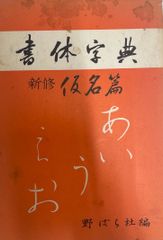 書体字典
新修 仮名篇
あい
う
えお
野ばら社編